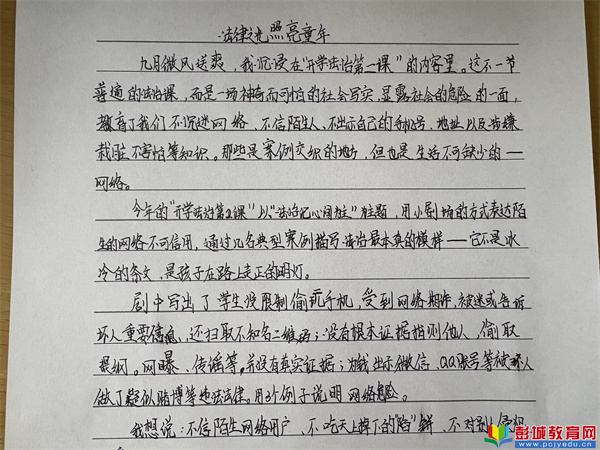 法律之光照亮童年
九月微风送爽，我沉浸在"开学法治第一课"的内容里。这不一节
普通的法治课，而是一场神奇而可怕的社会写实，显露社会的危险的一面，
教育了我们不沉迷网络、不信陌生人、不出示自己的手机号、地址以及被
栽赃不害怕等知识。那些是案例交织的地方，但也是生活不可缺少的——
网络。
今年的"开学法治第一课"以"法治记心间"为主题，用小剧场的方式表达陌
生的网络不可信用，通过几名典型案例描写法治最本真的模样——它不是冰
冷的条文，是孩子在路上走正的明灯。
剧中写出了学生没限制偷玩手机，受到网络欺诈，被迷惑告诉
坏人重要信息，还扫取不知名二维码；没有根本证据指则他人，偷取
网曝、传谣等，并没有真实证据；出示微信、QQ账号等被坏人
做了疑似赌博等违法法律。用例子说明网络危险。
我想说：不信陌生网络用户，不吃天上掉下的"陷"饼，不对别
彭城教育网
www.pcjyedu.cn